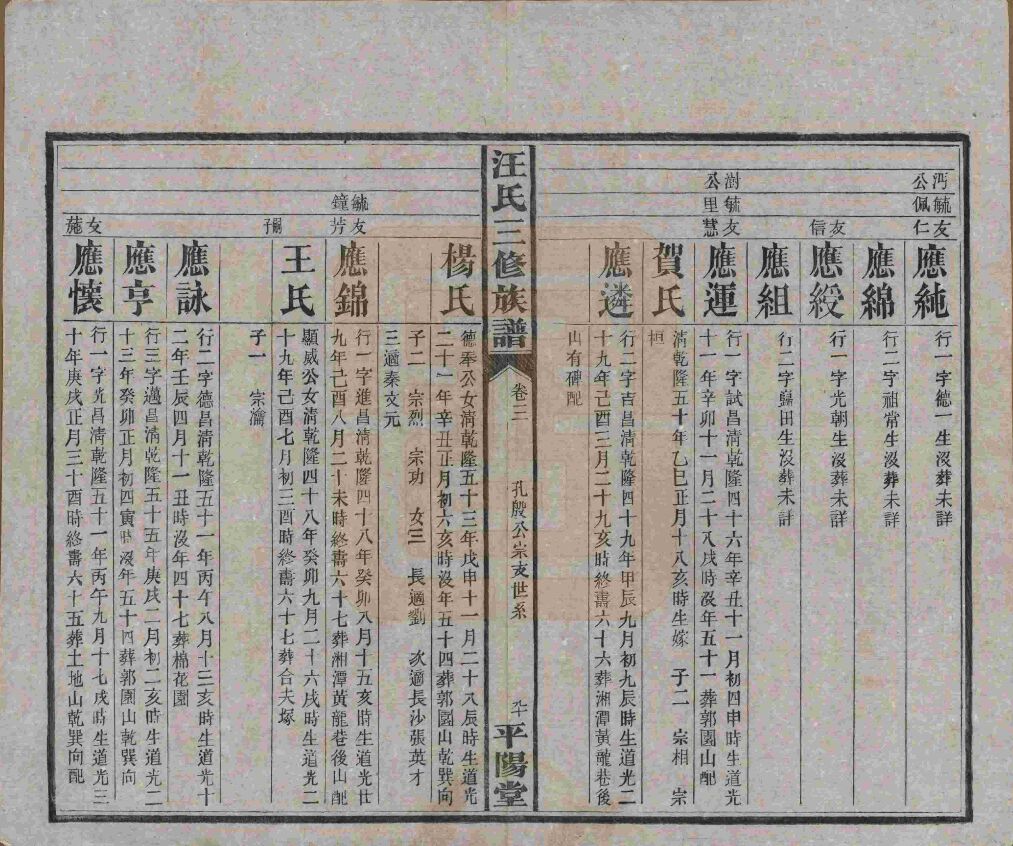 沔毓友
公佩仁
應純
行一字德一生沒葬未詳
應綿
行二字祖常生沒葬未詳
友
信
應綬
行一字光朝生沒葬未詳
應組
行二字歸田生沒葬未詳
澍毓友
公里慧
應運
行一字試昌清乾隆四十六年辛丑十一月初四申時生道光
十一年辛卯十一月二十八戌時沒年五十一葬郭園山配
賀氏
清乾隆五十年乙巳正月十八亥時生嫁 子二 宗相 宗
桓
應遴
行二字吉昌清乾隆四十九年甲辰九月初九辰時生道光二
十九年己酉三月二十九亥時終壽六十六葬湘潭黃龍巷後
山有碑配
汪氏三修族譜
卷三
孔殷公宗支世系
平陽堂
楊氏
德奉公女清乾隆五十三年戊申十一月二十八辰時生道光
二十一年辛丑正月初六亥時沒年五十四葬郭園山乾巽向
子二 宗烈 宗功 女三 長適劉 次適長沙張英才
三適秦文元
毓友
鐘芳
應錦
行一字進昌清乾隆四十八年癸卯八月十五亥時生道光廿
九年己酉八月二十未時終壽六十七葬湘潭黃龍巷後山配
嗣子
王氏
顯威公女清乾隆四十八年癸卯九月二十六戌時生道光二
十九年己酉七月初三酉時終壽六十七葬合夫塚
子一 宗瀹
應詠
行二字德昌清乾隆五十一年丙午八月十三亥時生道光十
二年壬辰四月十一丑時沒年四十七葬棉花園
應亨
行三字邁昌清乾隆五十五年庚戌二月初二亥時生道光二
十三年癸卯正月初四寅時沒年五十四葬郭園山乾巽向
友
應懷
行一字光昌清乾隆五十一年丙午九月十七戌時生道光三
十年庚戌正月三十酉時終壽六十五葬土地山乾巽向配